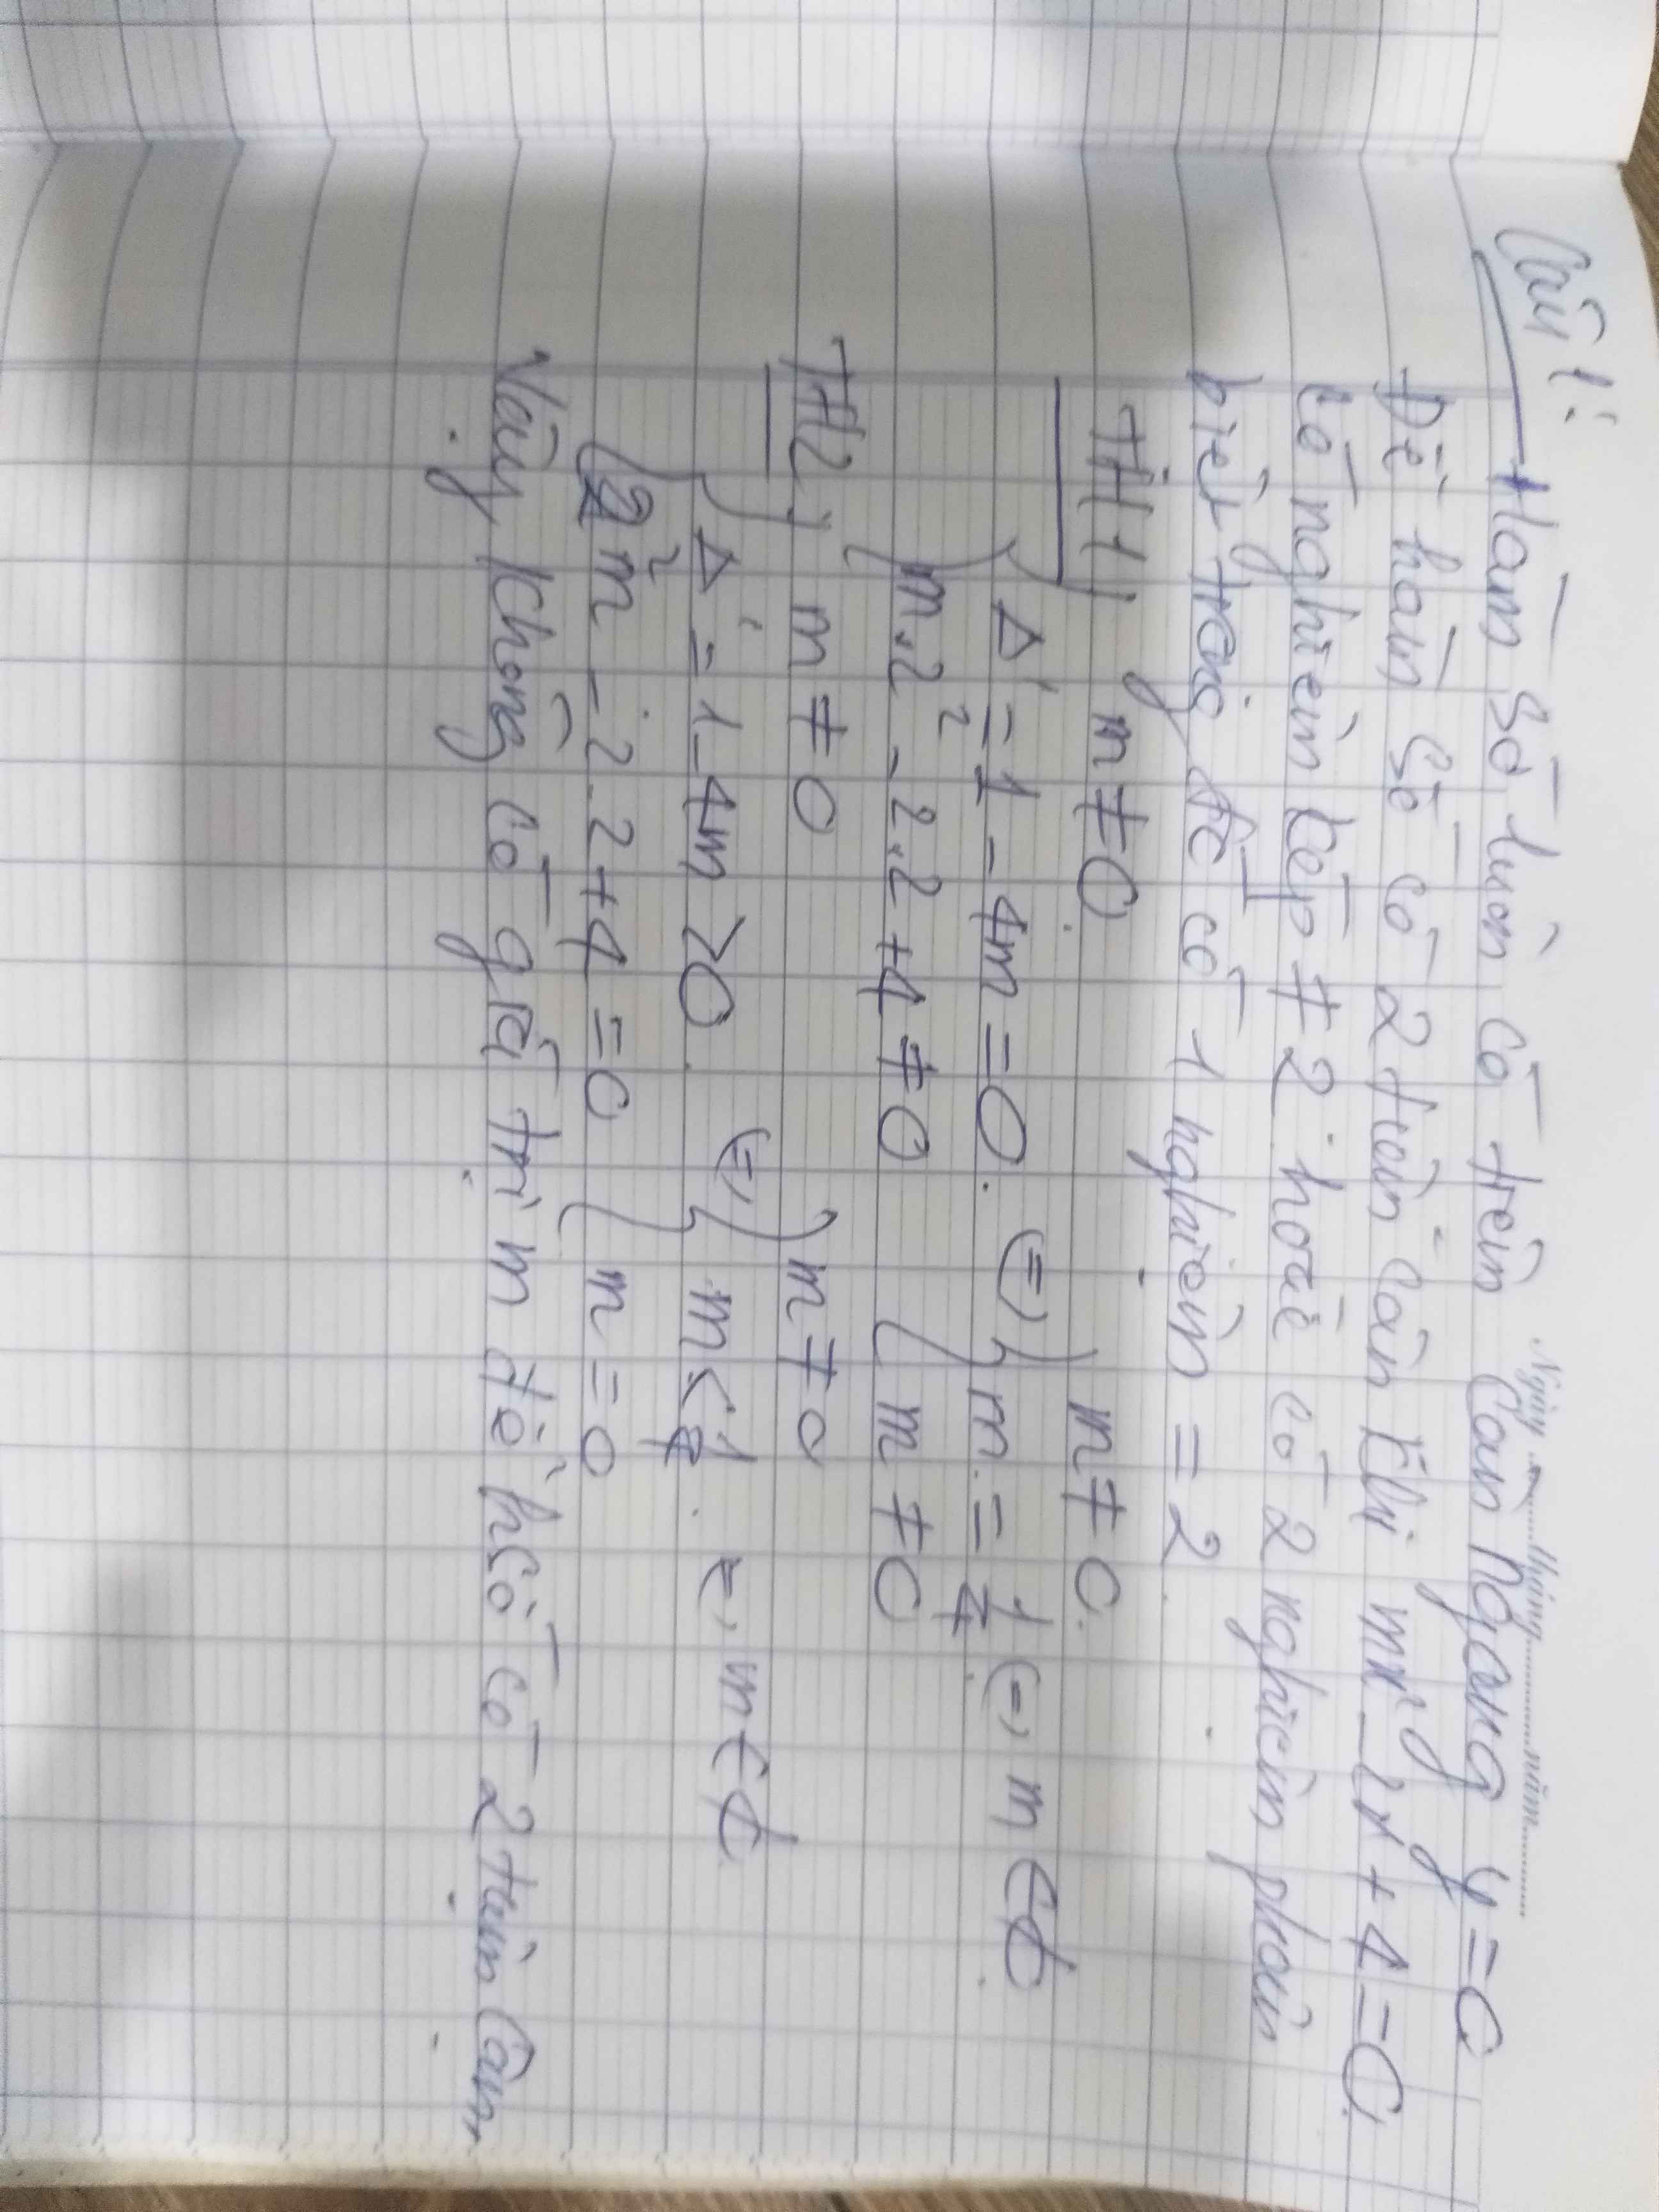 Ngày.......tháng.......năm.......
Câu 1: Hàm số luôn có tiệm cận ngang y = 0
Để hàm số có 2 tiệm cận khi mx² - 2x + 4 = 0
có nghiệm kép ≠ 2 hoặc có 2 nghiệm phân
biệt trong đó có 1 nghiệm = 2.
TH1, { m ≠ 0
Δ' = 1 - 4m = 0. (=) { m ≠ 0. m = 1/4 (=) m ∈ ∅
m.2² - 2.2 + 4 ≠ 0 m ≠ 0
TH2, { m ≠ 0 { m ≠ 0
Δ' = 1 - 4m > 0 (=) m < 1/4 =, m ∈ ∅
2²m - 2.2 + 4 = 0 m = 0
Vậy không có giá trị m để hsố có 2 tiệm cận